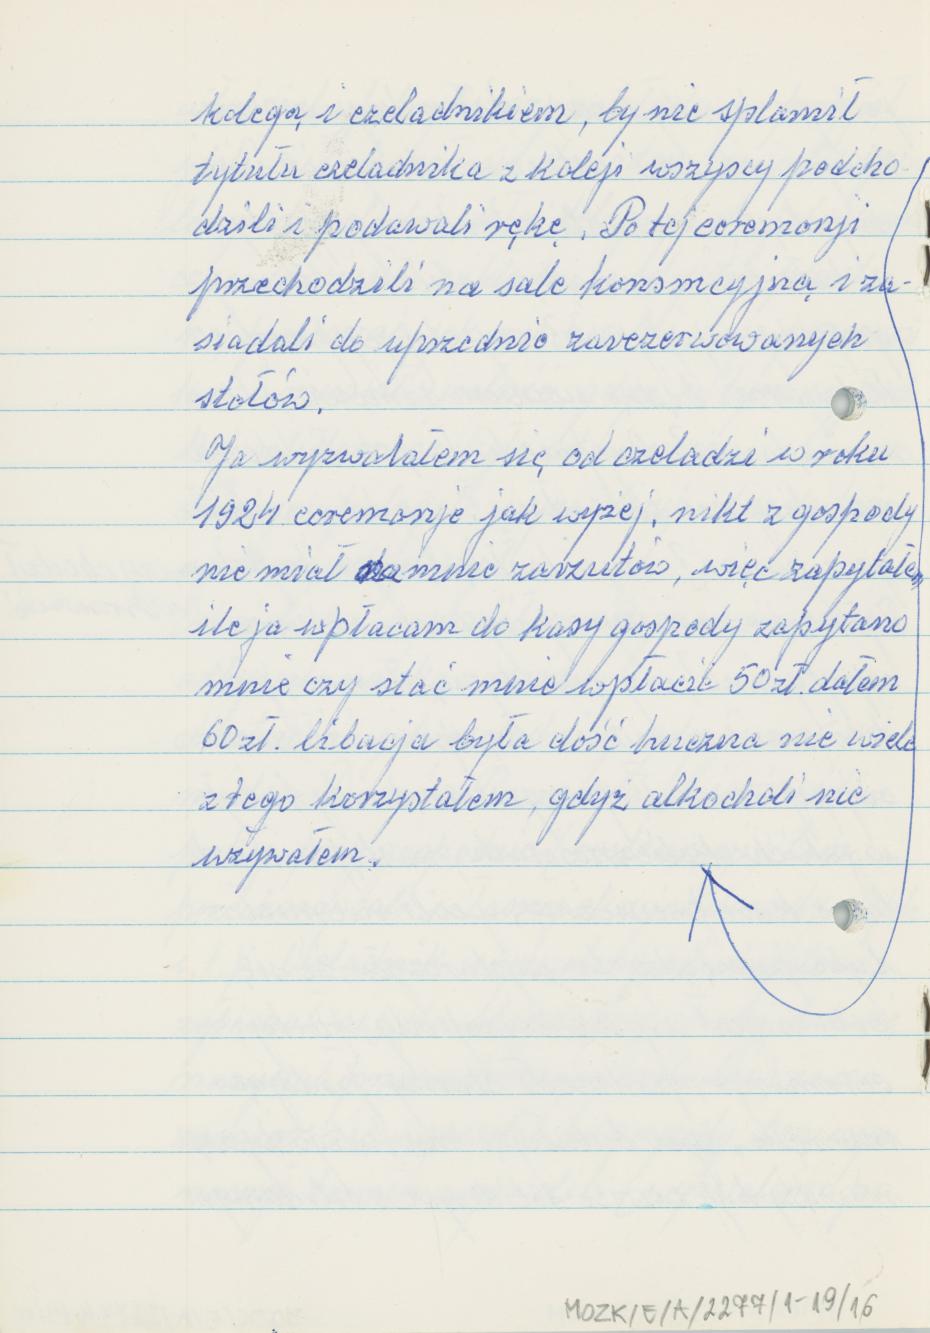 kolegą i czeladnikiem, by nie splamił
tytułu czeladnika z koleji wszyscy podcho-
dzili i podawali rękę. Po tej ceremonji
przechodzili na sale konsmcyjną i za-
siadali do uprzednie zarezerwowanych
stołów.
Ja wyzwalałem się od czeladzi w roku
1924 ceremonje jak wyżej, nikt z gospody
nie miał na mnie zarzutów, więc zapytałem
ile ja wpłacam do kasy gospody zapytano
mnie czy stać mnie wpłacić 50 zł. dałem
60 zł. libacja była dość huczna nie wiele
z tego korzystałem, gdyż alkocholi nie
używałem.
MOZK/E/A/2277/1-19/16